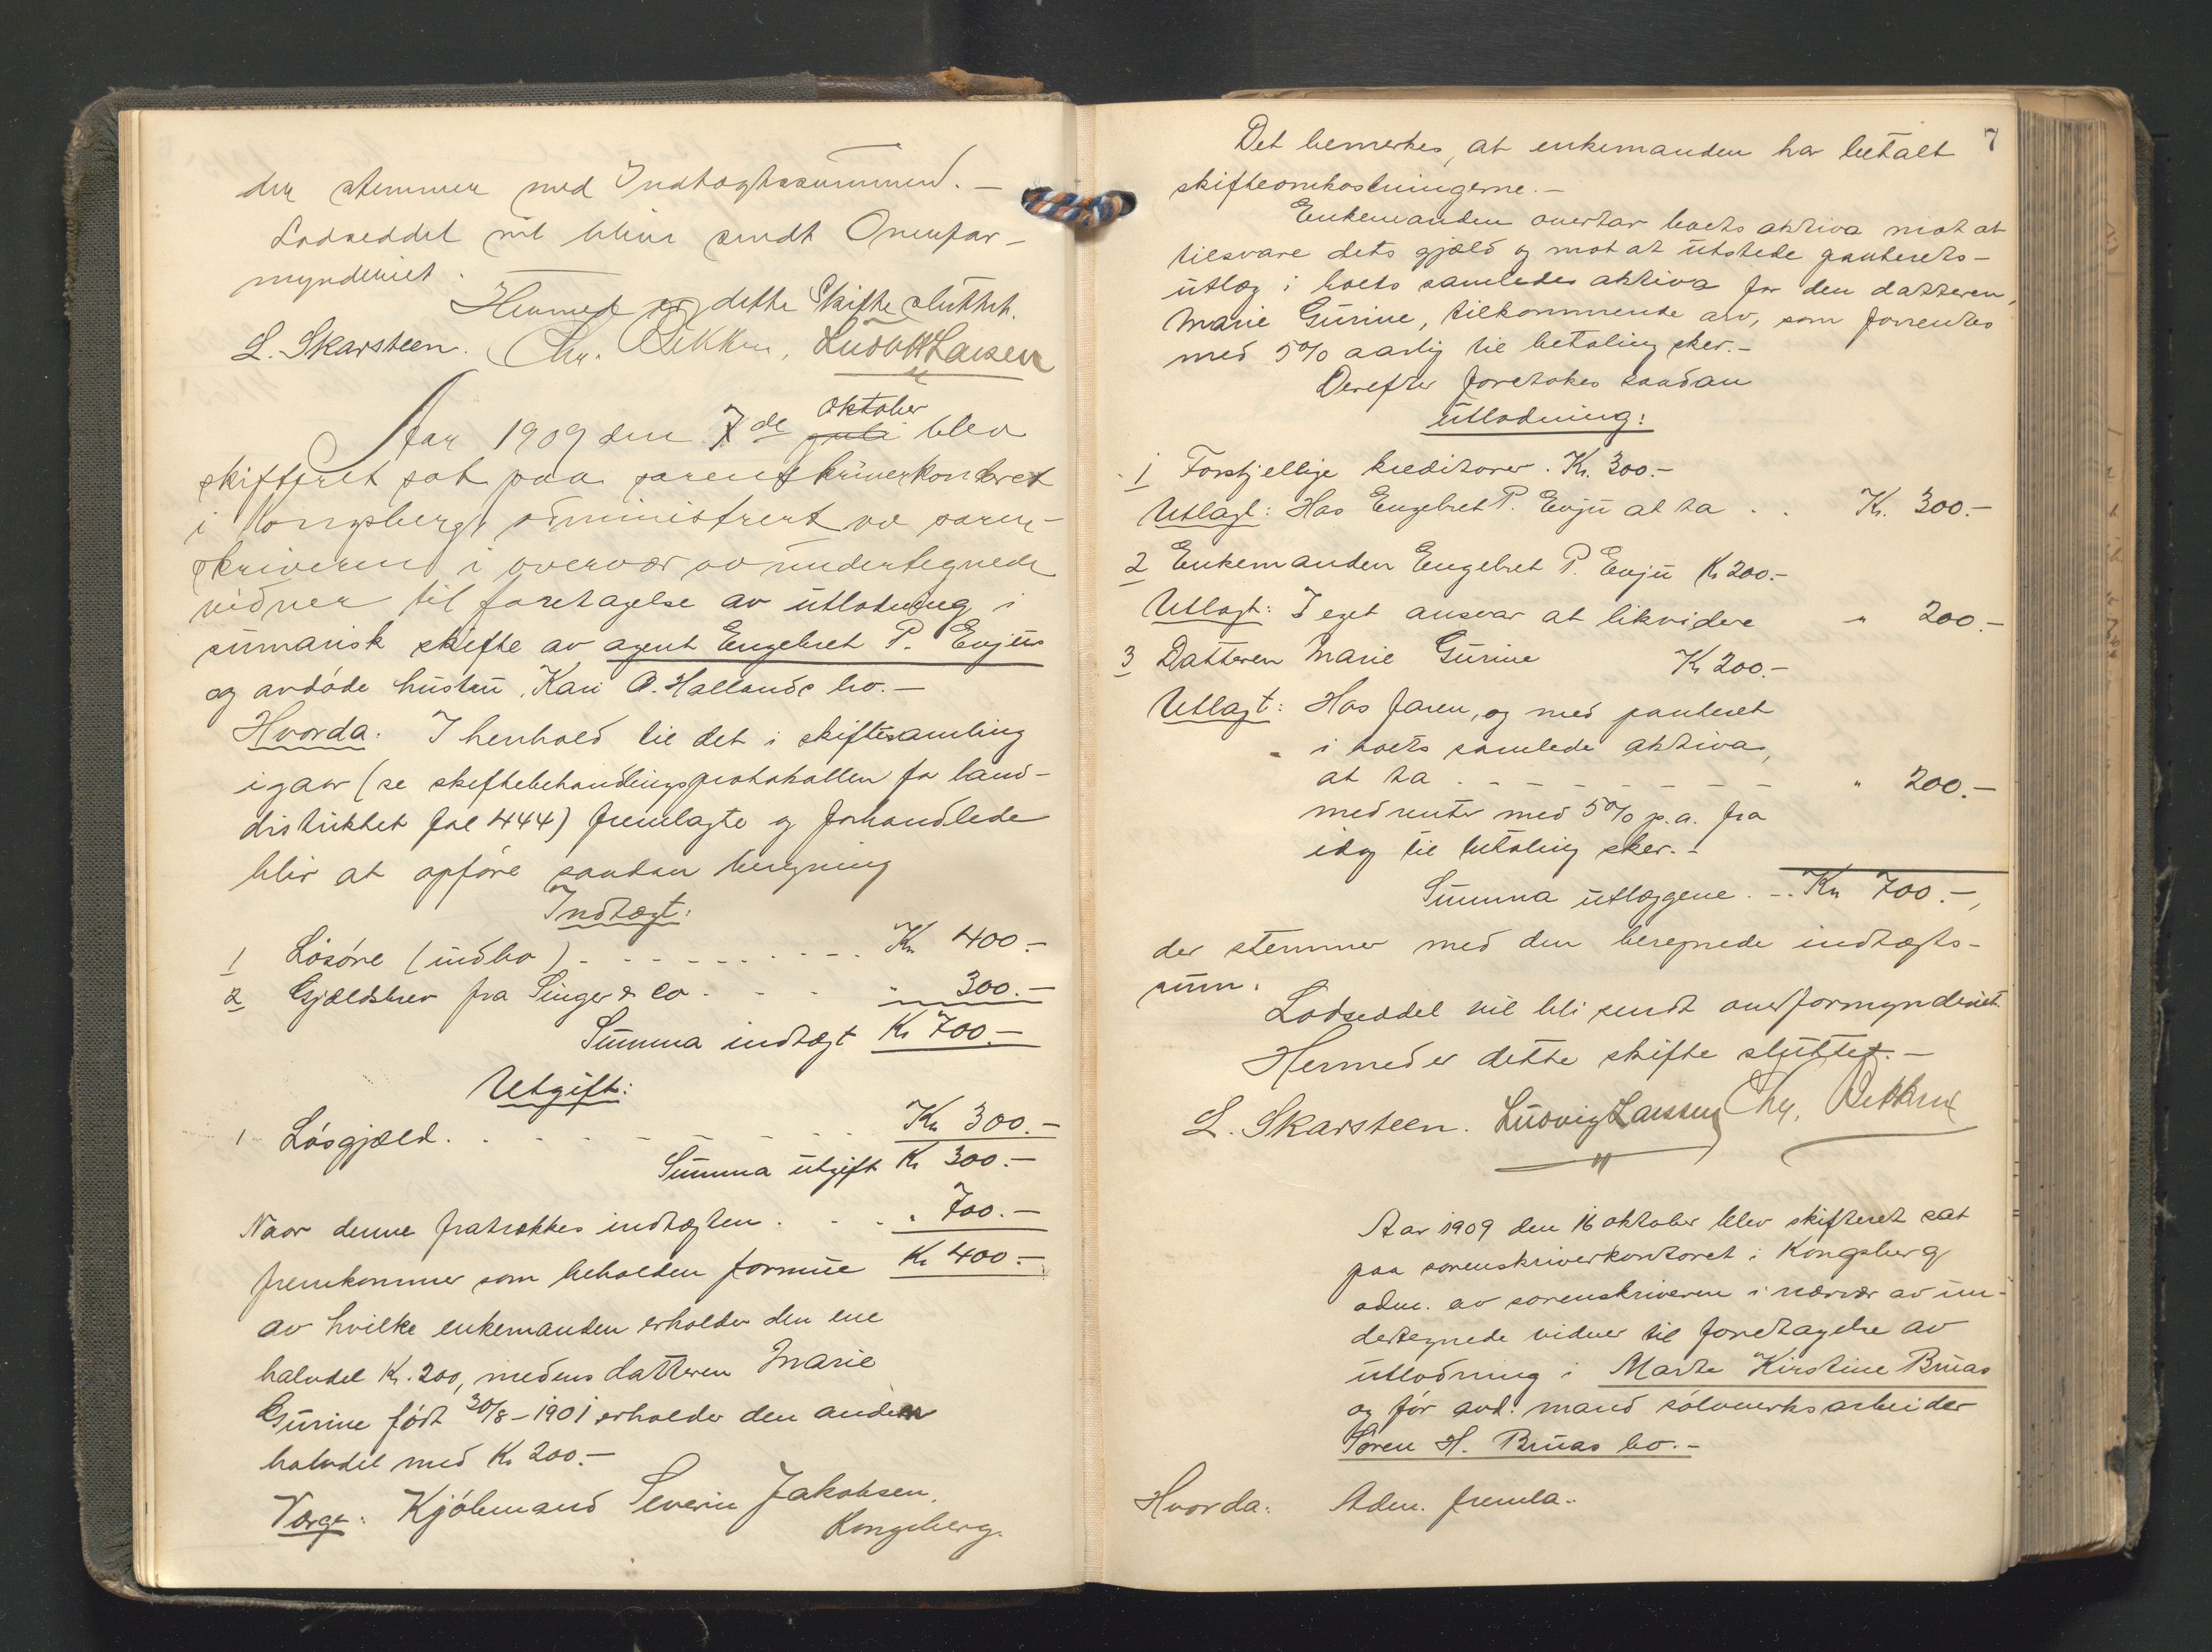 der stemmer med Indtægtssummen. —
Lodseddel vil blive sendt Overfor-
mynderiet.
Hermed er dette Skifte sluttet.
L. Skarsteen. Chr. Bekken, Ludv H Larsen
Aar 1909 den 7de juli oktober blev
skifteret sat paa sorenskriverkontoret
i Kongsberg administrert av soren-
skriveren i overvær av undertegnede
vidner til foretagelse av utlodning i
sumarisk skifte av agent Engebret P. Evjus
og avdøde hustru, Kari A. Hallands bo. —
Hvorda: I henhold til det i skiftesamling
igaar (se skiftebehandlingsprotokollen for land-
distriktet fol 444) fremlagte og forhandlede
blir at opføre saadan beregning
Indtægt:
1 Løsøre (indbo) . . . . Kr 400.—
2 Gjældsbrev fra Singer & Co . . . " 300.—
Summa indtægt Kr 700.—
Utgift:
1 Løsgjæld . . . . Kr 300.—
Summa utgift Kr 300.—
Naar denne fratrækkes indtægten . . . " 700.—
fremkommer som beholden formue Kr 400.—
av hvilke enkemanden erholder den ene
halvdel Kr. 200, medens datteren Marie
Gurine født 30/8 – 1901 erholder den anden
halvdel med Kr 200.—
Verge: Kjøbmand Severin Jakobsen,
Kongsberg.
7
Det bemerkes, at enkemanden har betalt
skifteomkostningerne. —
Enkemanden overtar boets aktiva mot at
tilsvare dets gjæld og mot at utstede panterets-
utlæg i boets samledes aktiva for den datteren,
Marie Gurine, tilkommende arv, som forrentes
med 5% aarlig til betaling sker. —
Derefter foretokes saadan
utlodning:
1 Forskjellige kreditorer. Kr. 300.—
Utlagt: Hos Engebret P. Evju at ta . . Kr. 300.—
2 Enkemanden Engebret P. Evju Kr 200.—
Utlagt: I eget ansvar at likvidere " 200.—
3 Datteren Marie Gurine Kr 200.—
Utlagt: Hos faren, og med panteret
i boets samlede aktiva,
at ta . . . . " 200.—
med renter med 5% p.a. fra
idag til betaling sker. —
Summa utlæggene . . Kr 700.—,
der stemmer med den beregnede indtægts-
sum.
Lodseddel vil bli sendt overformynderiet.
Hermed er dette skifte sluttet. —
L. Skarsteen. Ludvig Larssen Chr. Bekken
Aar 1909 den 16 oktober blev skifteret sat
paa sorenskriverkontoret i Kongsberg
adm. av sorenskriveren i nærvær av un-
dertegnede vidner til foretagelse av
utlodning i Marte Kirstine Bruas
og før avd. mand sølvverksarbeider
Søren H. Bruas bo. —
Hvorda: Adm. fremla.